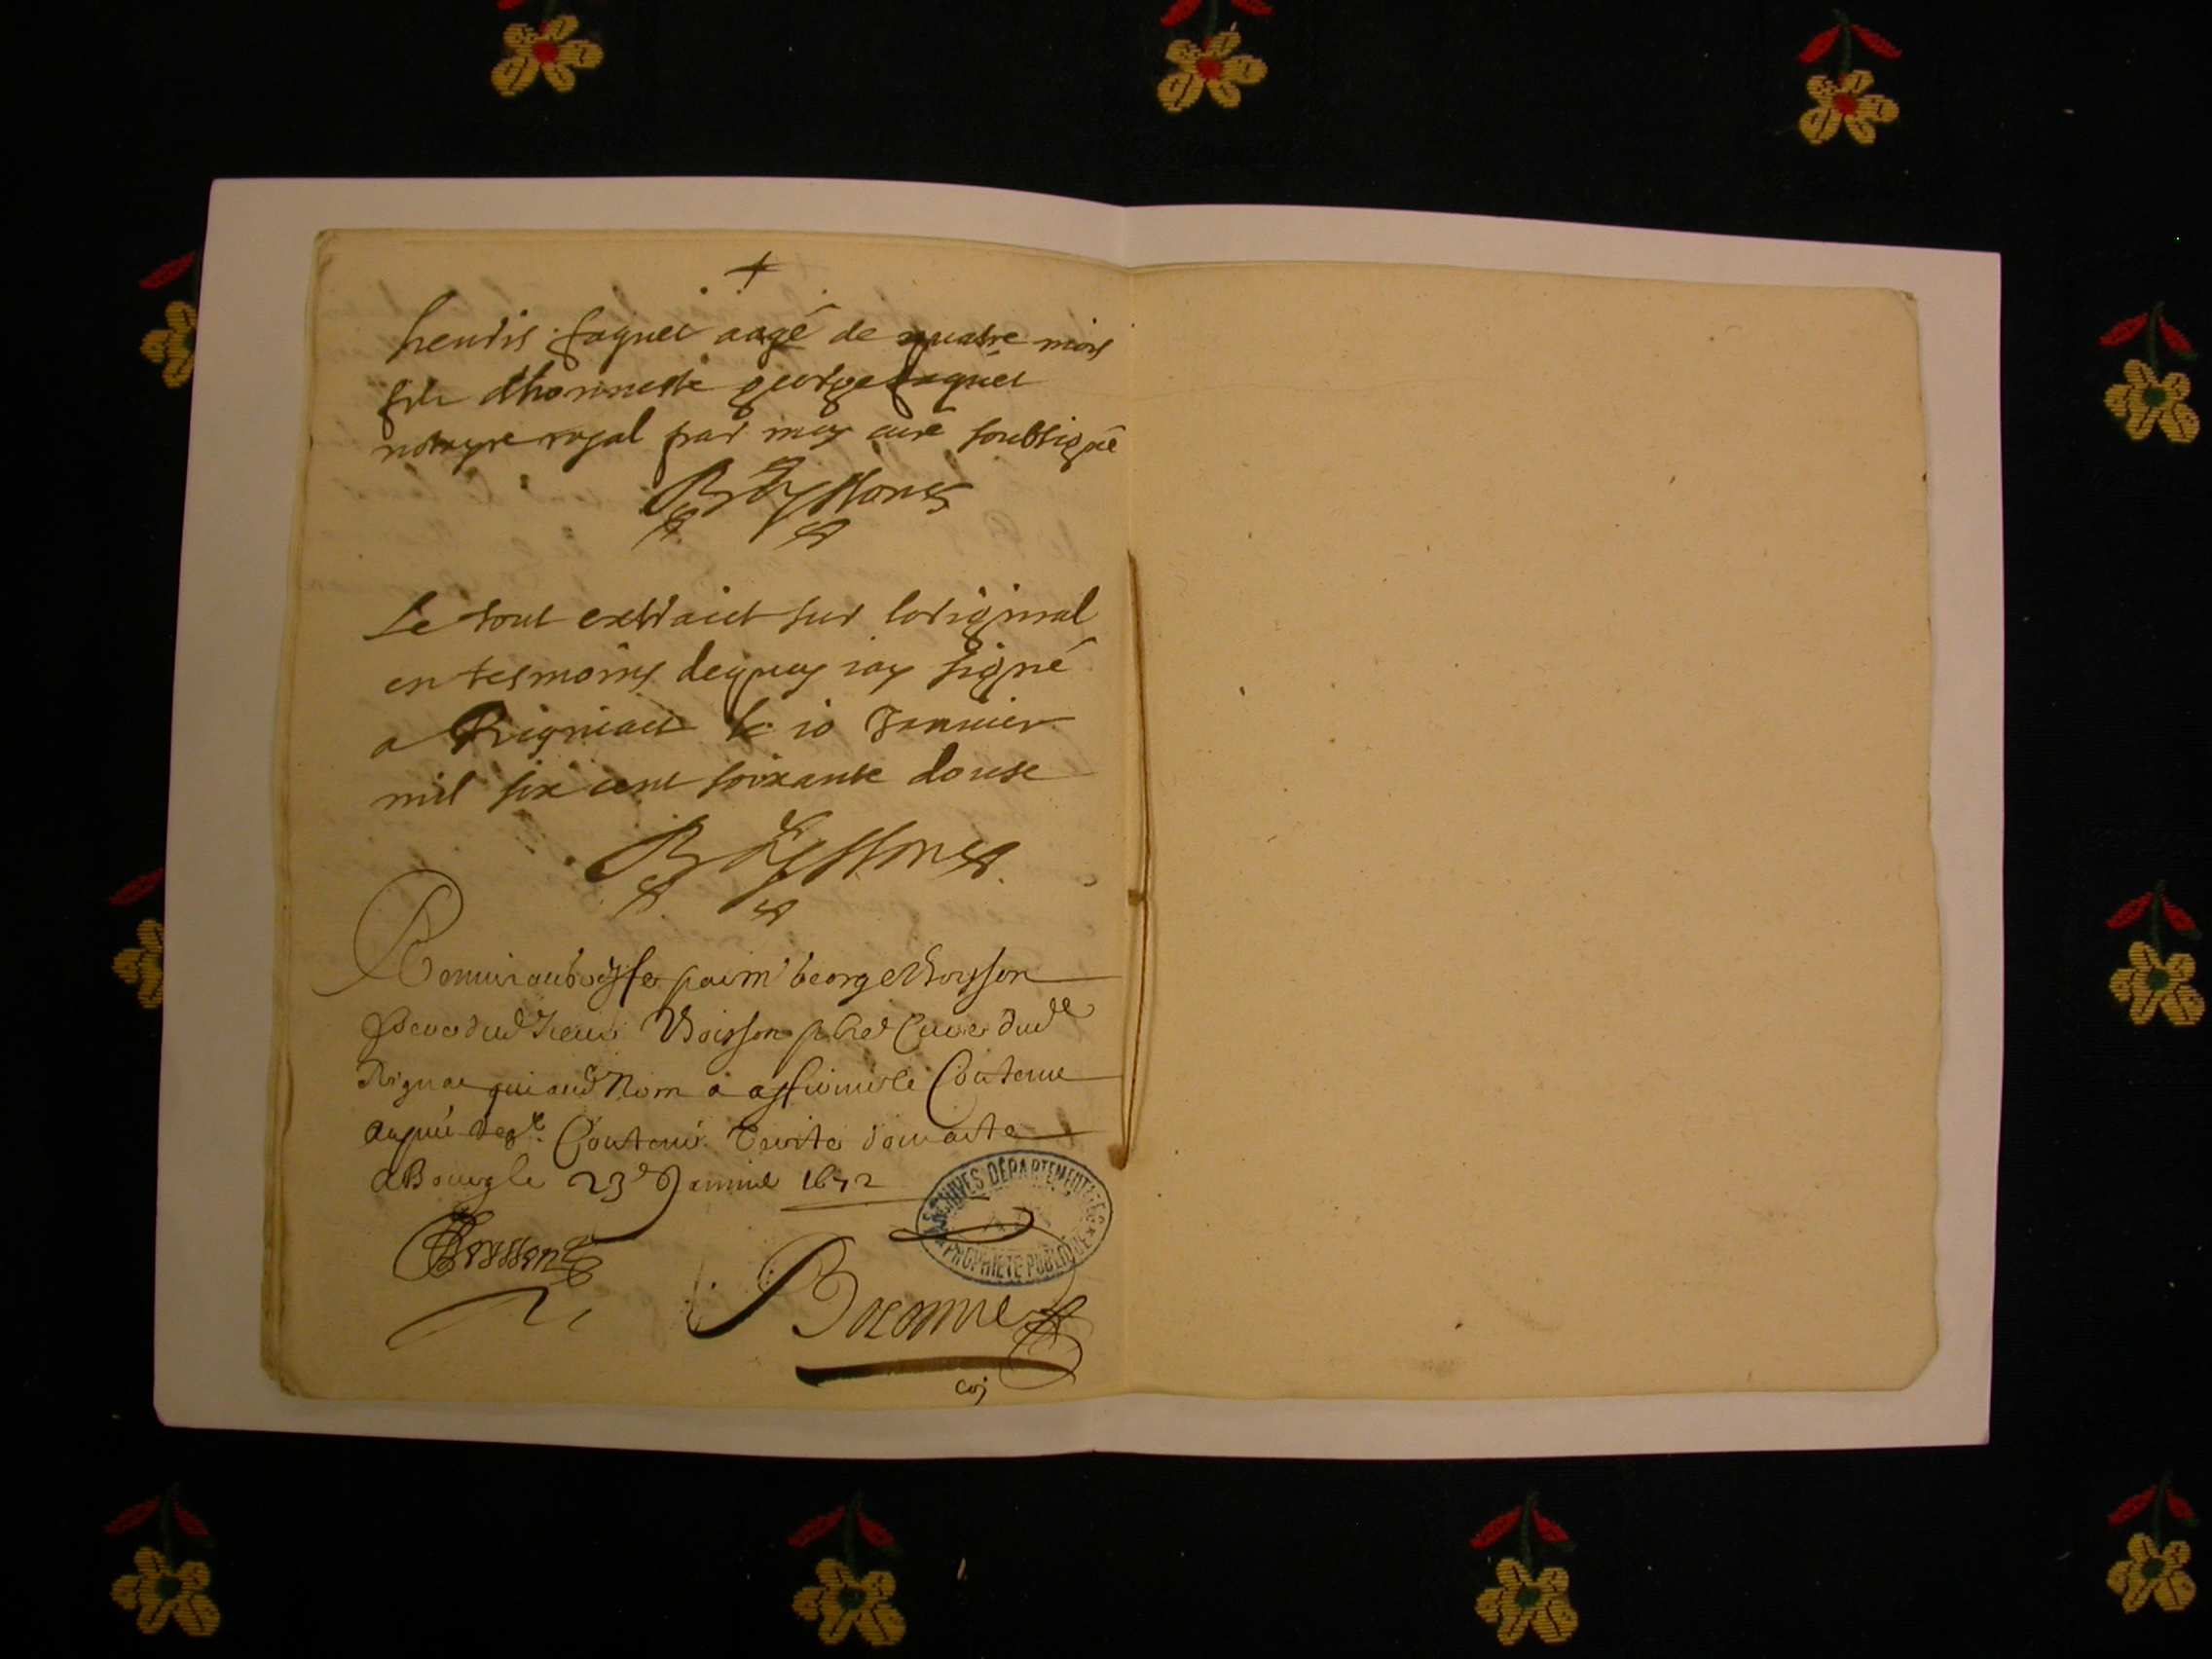 henris faguet aagé de quatre mois
fils dhonneste george faguet
notayre royal par moy curé soubsigné
Boyssons
Le tout extraict sur loriginal
en tesmoins dequoy iay signé
a Rigniact le 10 Januier
mil six cent soixante douse
Boyssons
Remis au Greffe par mr George Boysson
frere dud sieur Boisson pbre Cure dud
Rignac qui aud Nom a affirmé le Contenu
Contenir verité dont acte
a Bourg le 23e Januier 1672
Boysson
ARCHIVES DÉPARTEMENTALES
AIN
PROPRIETE PUBLIQUE